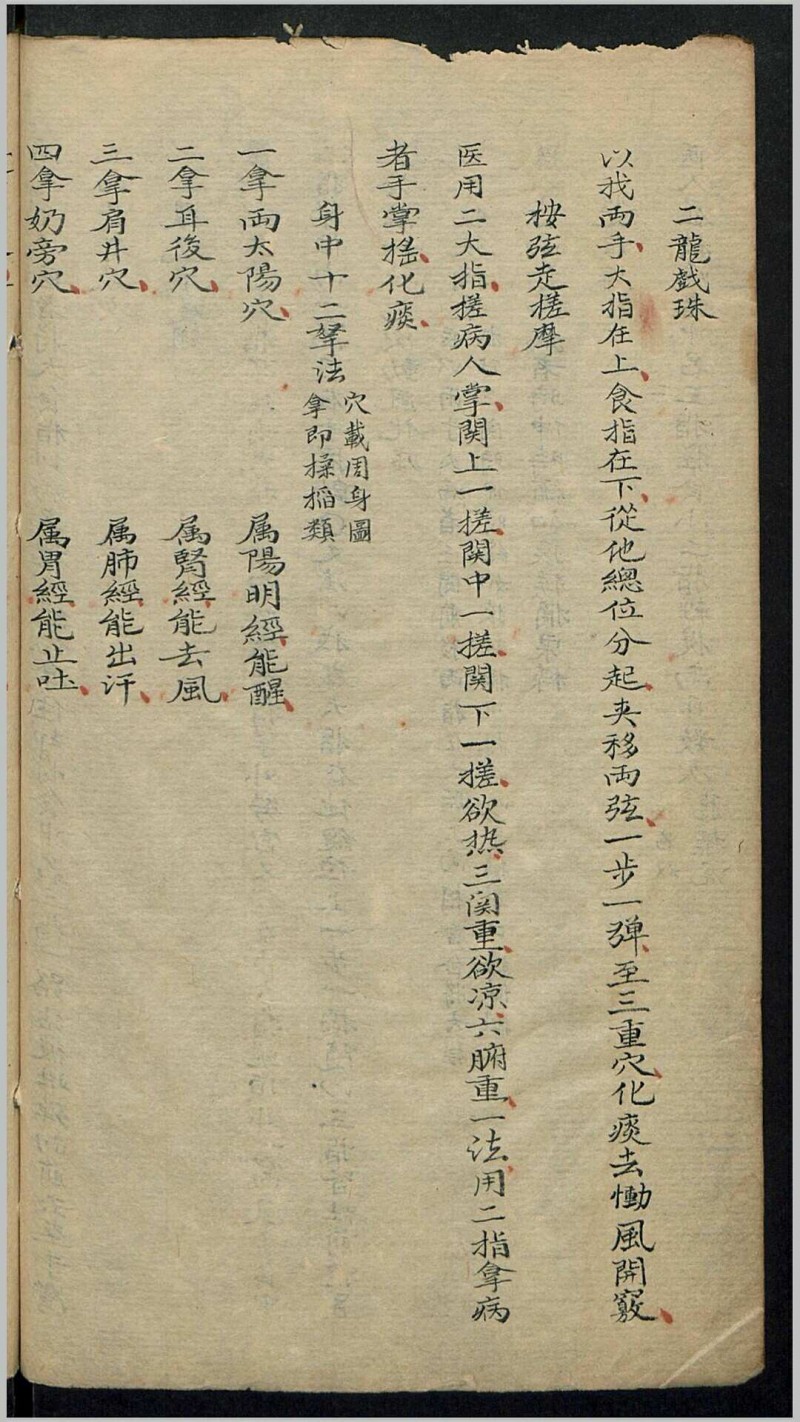 二龍戲珠
以我両手大指在上食指在下從他總位分起夹移両弦一步一弹至三重穴化痰去慟風開竅
按弦走搓摩
医用二大指搓病人掌関上一搓関中一搓関下一搓欲热三関重欲凉六腑重一法用二指拿病
者手掌摇化痰
身中十二拏法
穴載周身圖
拿即揉掐類
一拿両太陽穴 属陽明經能醒
二拿耳後穴 属腎經能去風
三拿肩井穴 属肺經能出汗
四拿奶旁穴 属胃經能止吐